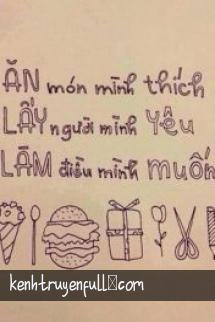 ĂN món mình thích
LẤY người mình Yêu
LÀM điều mình muốn
kenhtruyenfull.com